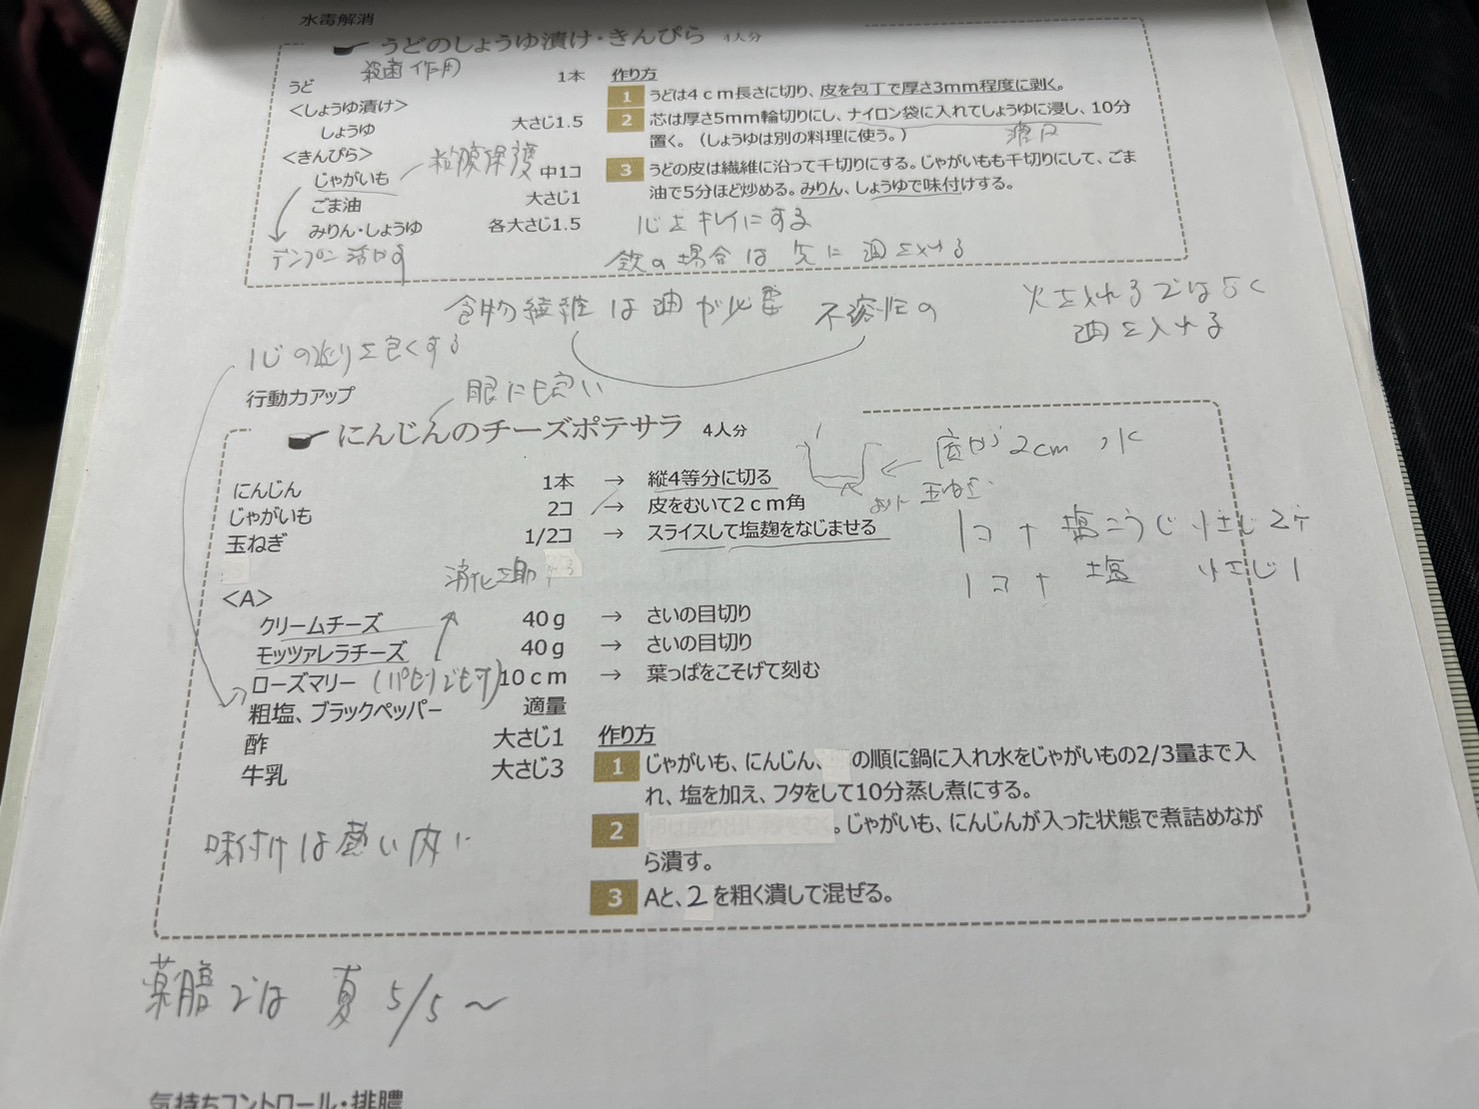 水毒解消
うどのしょうゆ漬け・きんぴら 4人分
殺菌作用
うど 1本
<しょうゆ漬け>
しょうゆ 大さじ1.5
<きんぴら>
粘膜保護
じゃがいも 中1コ
ごま油 大さじ1
みりん・しょうゆ 各大さじ1.5
デンプン 活かす
作り方
1 うどは4cm長さに切り、皮を包丁で厚さ3mm程度に剥く。
2 芯は厚さ5mm輪切りにし、ナイロン袋に入れてしょうゆに浸し、10分
置く。(しょうゆは別の料理に使う。)
3 うどの皮は繊維に沿って千切りにする。じゃがいもも千切りにして、ごま
油で5分ほど炒める。みりん、しょうゆで味付けする。
心をキレイにする
鉄の場合は先に油を入れる
食物繊維は油が必要 不溶性の
火を入れるではなく
油を入れる
心の巡りを良くする
行動力アップ
眼にも良い
にんじんのチーズポテサラ 4人分
にんじん 1本 → 縦4等分に切る
じゃがいも 2コ → 皮をむいて2cm角
玉ねぎ 1/2コ → スライスして塩麹をなじませる
底から2cm 水
1コ + 塩こうじ 小さじ2ヶ
1コ + 塩 小さじ1
消化を助ける
<A>
クリームチーズ 40g → さいの目切り
モッツァレラチーズ 40g → さいの目切り
ローズマリー (パセリでも可) 10cm → 葉っぱをこそげて刻む
粗塩、ブラックペッパー 適量
酢 大さじ1
牛乳 大さじ3
作り方
1 じゃがいも、にんじん、の順に鍋に入れ水をじゃがいもの2/3量まで入
れ、塩を加え、フタをして10分蒸し煮にする。
2 。じゃがいも、にんじんが入った状態で煮詰めなが
ら潰す。
3 Aと、2を粗く潰して混ぜる。
味付けは熱い内に
薬膳では 夏 5/5〜
気持ちコントロール・排膿